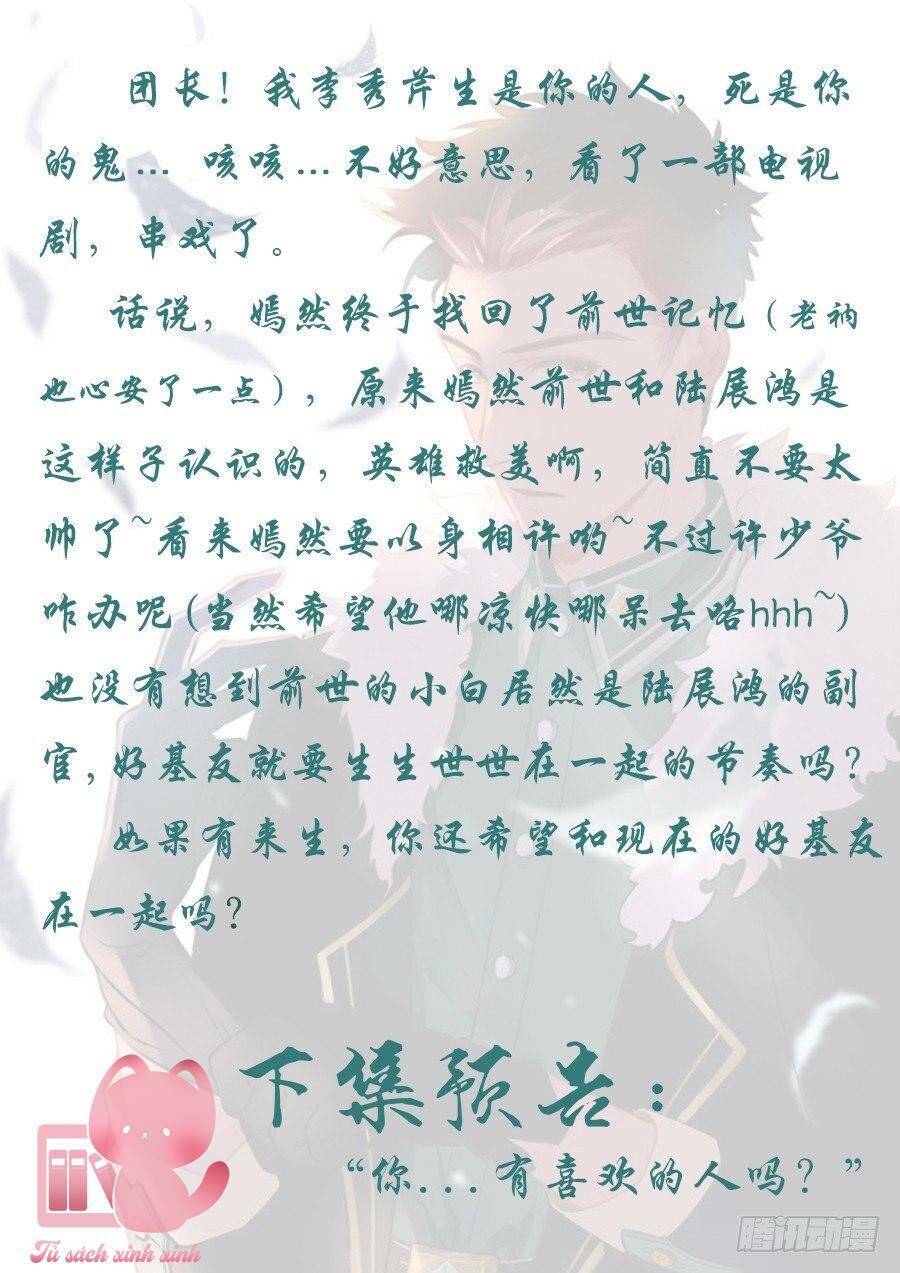 团长！我李秀芹生是你的人，死是你
的鬼... 咳咳...不好意思，看了一部电视
剧，串戏了。
话说，嫣然终于找回了前世记忆（老衲
也心安了一点），原来嫣然前世和陆展鸿是
这样子认识的，英雄救美啊，简直不要太
帅了~看来嫣然要以身相许哟~不过许少爷
咋办呢(当然希望他哪凉快哪呆去咯hhh~)
也没有想到前世的小白居然是陆展鸿的副
官,好基友就要生生世世在一起的节奏吗？
如果有来生，你还希望和现在的好基友
在一起吗？
下集预告：
“你...有喜欢的人吗？”
Tủ sách xinh xinh
腾讯动漫